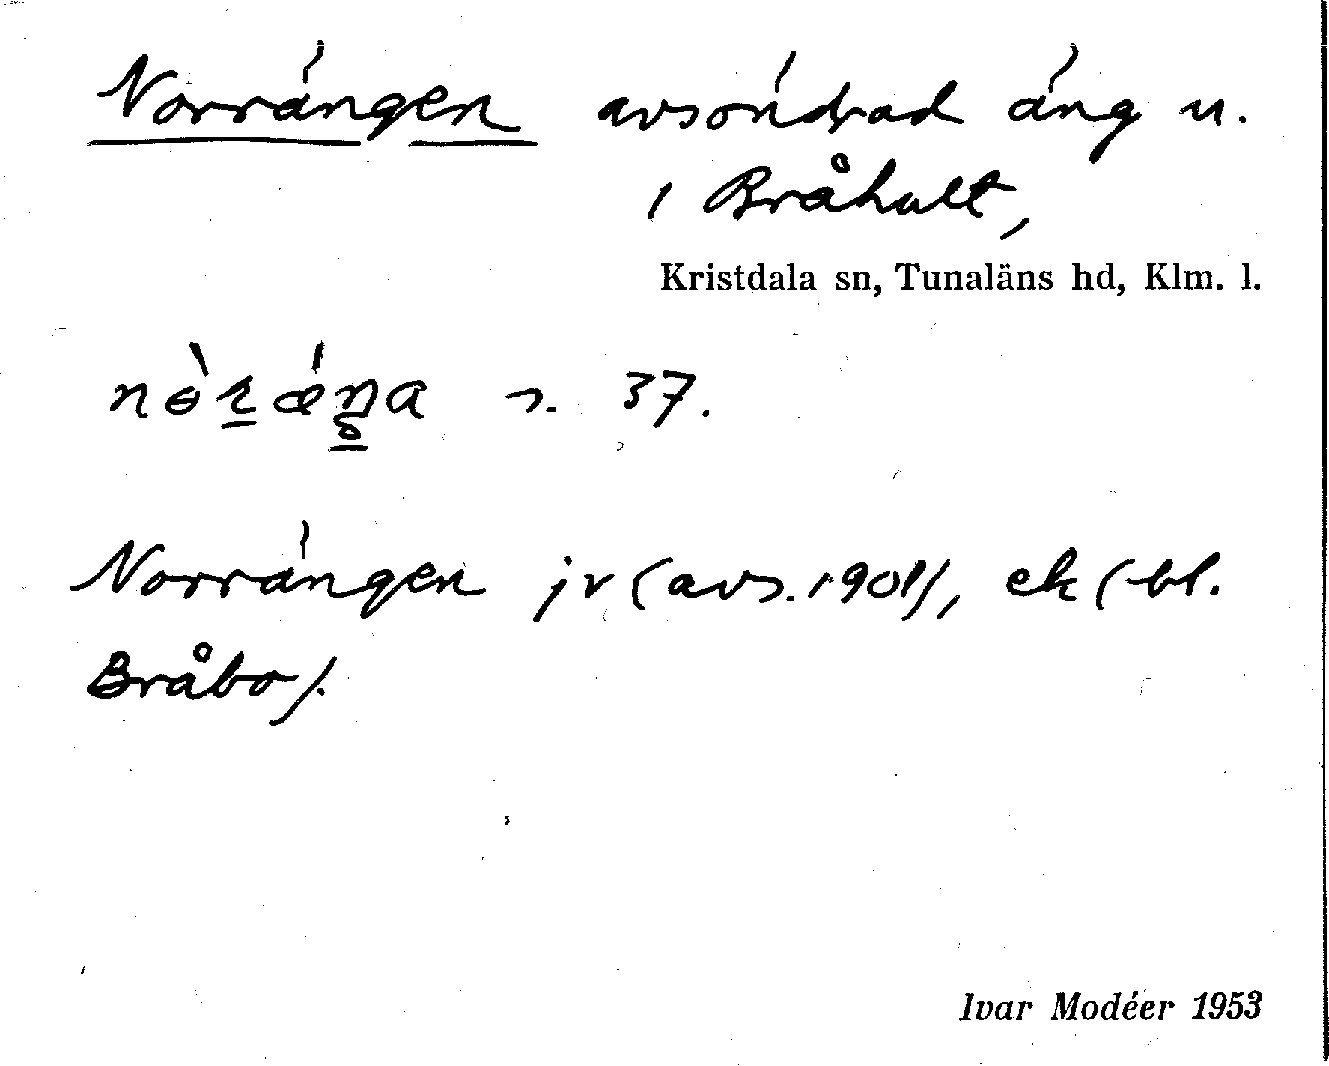 Norrängen avsöndrad äng u.
i Bråhult,
Kristdala sn, Tunaläns hd, Klm. l.
s. 37.
Norrängen jr (avs. 1901), ek (bl.
Bråbo).
Ivar Modéer 1953